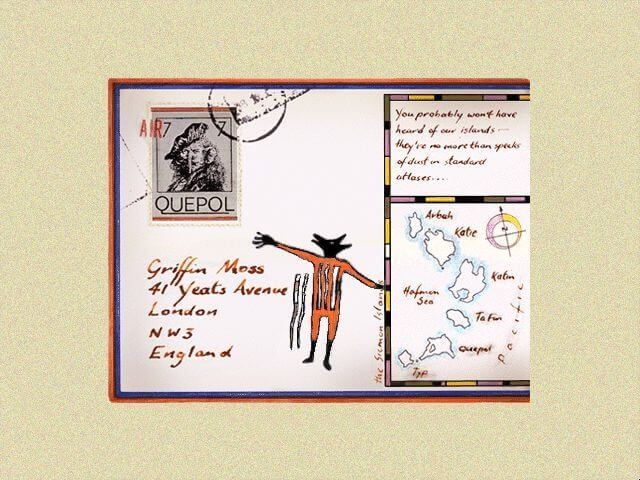 AIR 7 7
QUEPOL
Griffin Moss
41 Yeats Avenue
London
NW3
England
You probably won't have
heard of our islands —
they're no more than specks
of dust in standard
atlases....
Arbah
Katie
Katin
Hafmon
Sea
Ta Fin
Quepol
Typ
Pacific
the Sicmon Islands